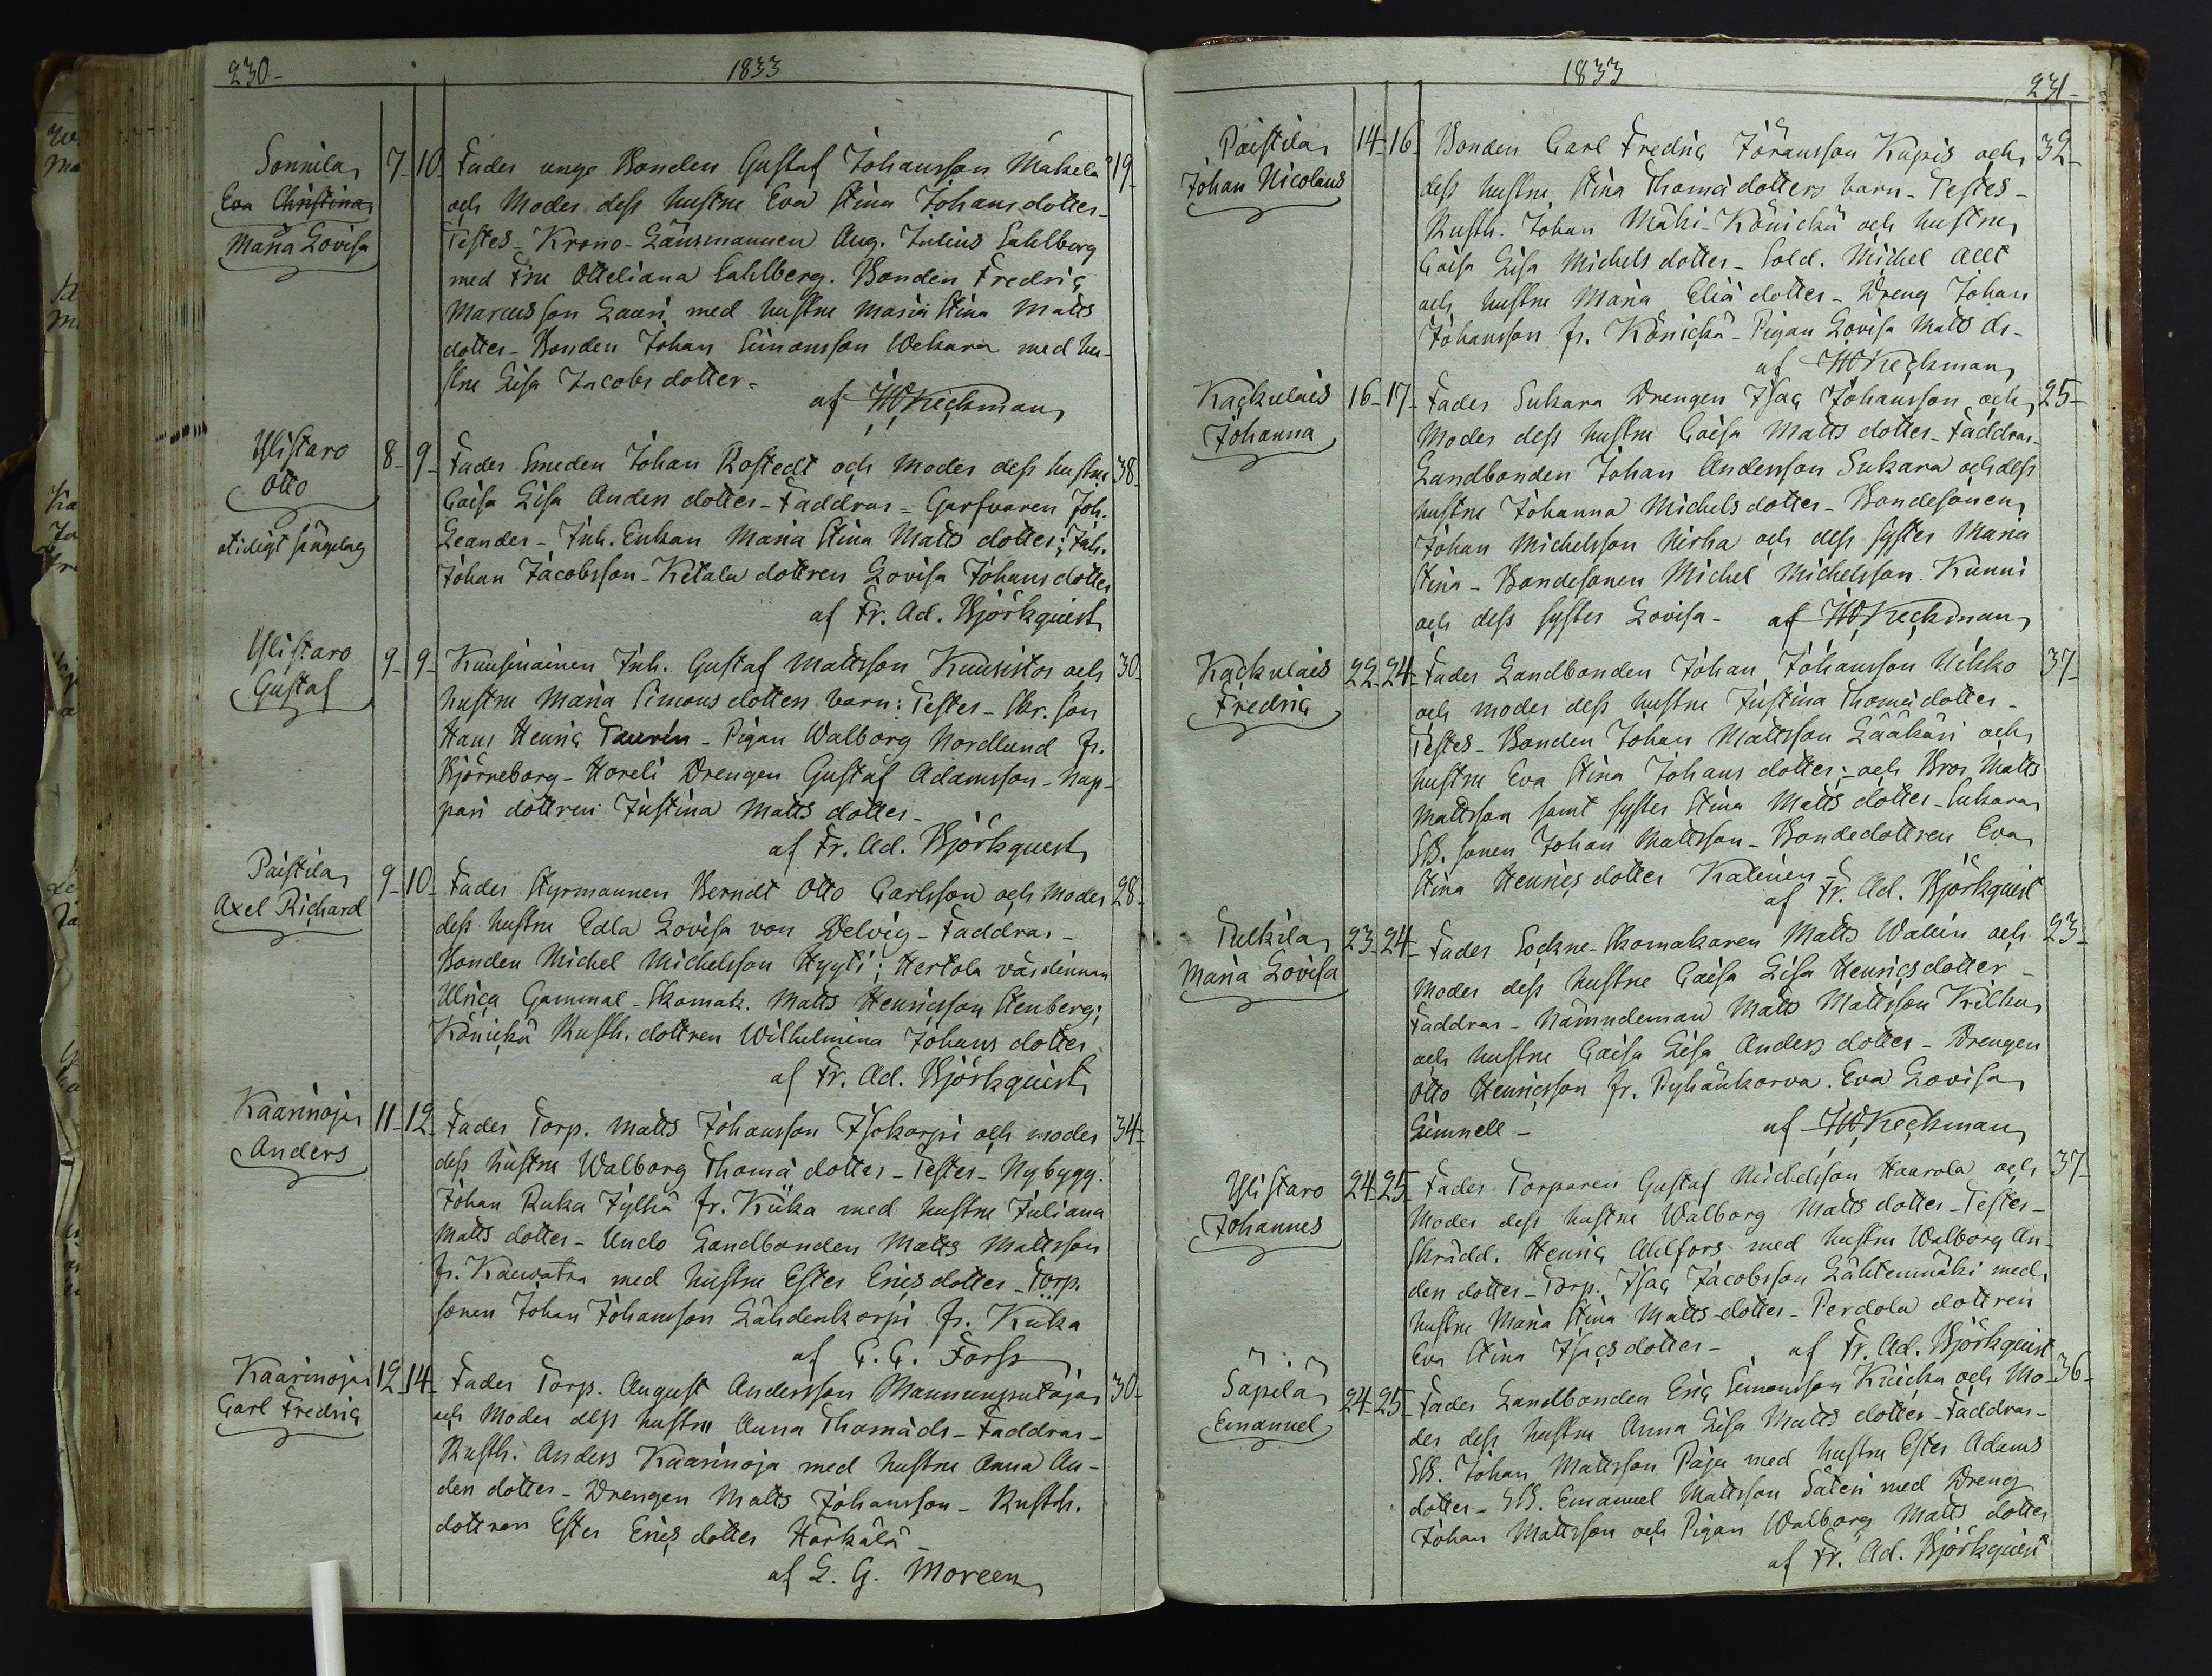 230-
1833
Sonnila 7- 10- Fader unge Bonden Gustaf Johansson Mäkelä 19-
Eva Christina och Moder dess hustru Eva Stina Johans dotter-
Maria Lovisa Testes- Krono-Länsmannen Aug. Julius Sahlberg
med Fru Otteliana Sahlberg. Bonden Fredric
Marcusson Lauri med hustru Maria Stina Matts
dotter- Bonden Johan Simonsson Wekara med hu-
stru Lisa Jacobs dotter-
af Keckman
Ylistaro 8- 9- Fader Smeden Johan Rostedt och Moder dess hustru 38-
Otto Caisa Lisa Anders dotter- Faddrar- Garfvaren Joh.
otidigt sängelag Leander- Inh. Enkan Maria Stina Matts dotter; Inh.
Johan Jacobsson- Ketala dottren Lovisa Johans dotter
af Fr. Ad. Björkquist
Ylistaro 9- 9- Kuusinainen Inh. Gustaf Mattsson Kuusistos och 30-
Gustaf hustru Maria Simons dotters barn: Testes- Skr. son
Hans Henric Taurén- Pigan Walborg Nordlund fr.
Björneborg- Horeli Drengen Gustaf Adamsson- Nap-
pari dottren Justina Matts dotter-
af Fr. Ad. Björkquist
Paistila 9- 10- Fader Styrmannen Berndt Otto Carlsson och Moder 28-
Axel Richard dess hustru Edla Lovisa von Delvig- Faddrar-
Bonden Michel Michelsson Hyyti; Hertola värdinnan
Ulrica Gammal- Skomak. Matts Henricsson Stenberg;
Könickä Rusth. dottren Wilhelmina Johans dotter
af Fr. Ad. Björkquist
Kaarinoja 11- 12- Fader Torp. Matts Johansson Isokorpi och moder 34-
Anders dess hustru Walborg Thomä dotter- Testes- Nybygg.
Johan Ruka Jylhä fr. Kiika med hustru Juliana
Matts dotter- Undo Landbonden Matts Mattsson
fr. Kauvatsa med hustru Ester Erics dotter- Torp.
sonen Johan Johansson Lähdenkorpi fr. Kiika
af G. G. Forss
Kaarinoja 12- 14- Fader Torp. August Andersson Mannunputaja 30-
Carl Fredric och Moder dess hustru Anna Thomäds- Faddrar-
Rusth. Anders Kaarinoja med hustru Anna An-
ders dotter- Drengen Matts Johansson- Rusth.
dottren Ester Erics dotter Härkälä-
af L. G. Moreen
1833
231-
Paistila 14- 16- Bonden Carl Fredric Jöransson Kupis och 32-
Johan Nicolaus dess hustru Stina Thomä dotters barn- Testes-
Rusth. Johan Mäki-Könickä och hustru
Caisa Lisa Michels dotter- Sold. Michel Allt
och hustru Maria Eliä dotter- Dreng Johan
Johansson fr. Könickä- Pigan Lovisa Matts dr-
af Keckman
Kackulais 16- 17- Fader Sukara Drengen Isac Johansson och 25-
Johanna Moder dess hustru Caisa Matts dotter- Faddrar-
Landbonden Johan Andersson Sukara och dess
hustru Johanna Michels dotter- Bondesonen
Johan Michelsson Nirha och dess syster Maria
Stina- Bondesonen Michel Michelsson Kunni
och dess syster Lovisa- af Keckman
Kackulais 22- 24- Fader Landbonden Johan Johansson Uihko 37-
Fredric och moder dess hustru Justina Thomä dotter-
Testes- Bonden Johan Mattsson Lääkäri och
hustru Eva Stina Johans dotter;- och Bror Matts
Mattsson samt syster Stina Matts dotter- Sukara
LB. sonen Johan Mattsson- Bondedottren Eva
Stina Henrics dotter Katinen-
af Fr. Ad. Björkquist
Tulkila 23- 24- Fader Sockne-Skomakaren Matts Wallin och 23-
Maria Lovisa Moder dess hustru Caisa Lisa Henricsdotter-
Faddrar- Nämndeman Matts Mattsson Krilhu
och hustru Caisa Lisa Anders dotter- Drengen
Otto Henricsson fr. Pyhänkorva. Eva Lovisa
Limnell- af Keckman
Ylistaro 24- 25- Fader Torparen Gustaf Michelsson Haarola och 37-
Johannes Moder dess hustru Walborg Matts dotter- Testes-
Skrädd. Henric Ahlfors med hustru Walborg An-
ders dotter- Torp. Isac Jacobsson Lähtenmäki med
hustru Maria Stina Matts dotter- Perdola dottren
Eva Stina Isacs dotter- af Fr. Ad. Björkquist
Säpilä 24- 25- Fader Landbonden Eric Simonsson Knicka och Mo- 36-
Emanuel der dess hustru Anna Lisa Matts dotter- Faddrar-
LB. Johan Mattsson Paju med hustru Ester Adams
dotter- LB. Emanuel Mattsson Säteri med Dreng
Johan Mattsson och Pigan Walborg Matts dotter
af Fr. Ad. Björkquist